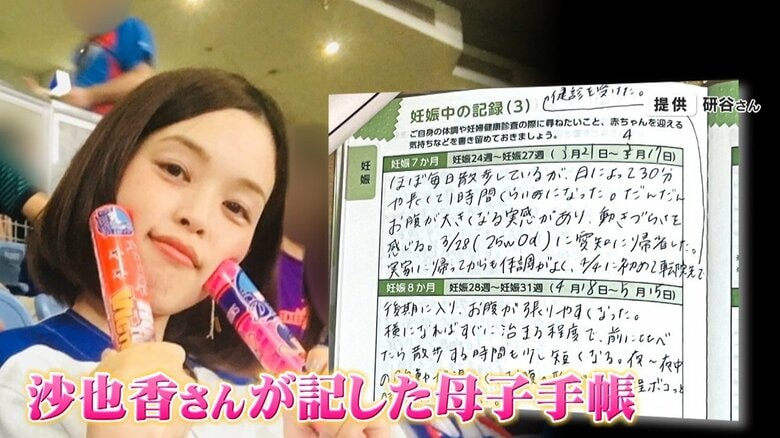 健診を受けた。
提供 研谷さん
妊娠中の記録(3)
ご自身の体調や妊婦健康診査の際に尋ねたいこと、赤ちゃんを迎える
気持ちなどを書き留めておきましょう。
妊娠
4
妊娠7か月 妊娠24週~妊娠27週 (3月21日~ 月17日)
ほぼ毎日散歩しているが、日によって30分
や長くて1時間くらいめになった。だんだん
お腹が大きくなる実感があり、動きづらいを
感じる。3/28(25w0d)に愛知に帰省した。
実家に帰ってからも体調がよく、4/4に初めて転院先で
妊娠8か月 妊娠28週~妊娠31週 (4月18日~5月15日)
後期に入り、お腹が張りやすくなった。
横になればすぐに治まる程度で、前に比べ
たら散歩する時間も少し短くなる。夜~夜中
ボコっと
沙也香さんが記した母子手帳